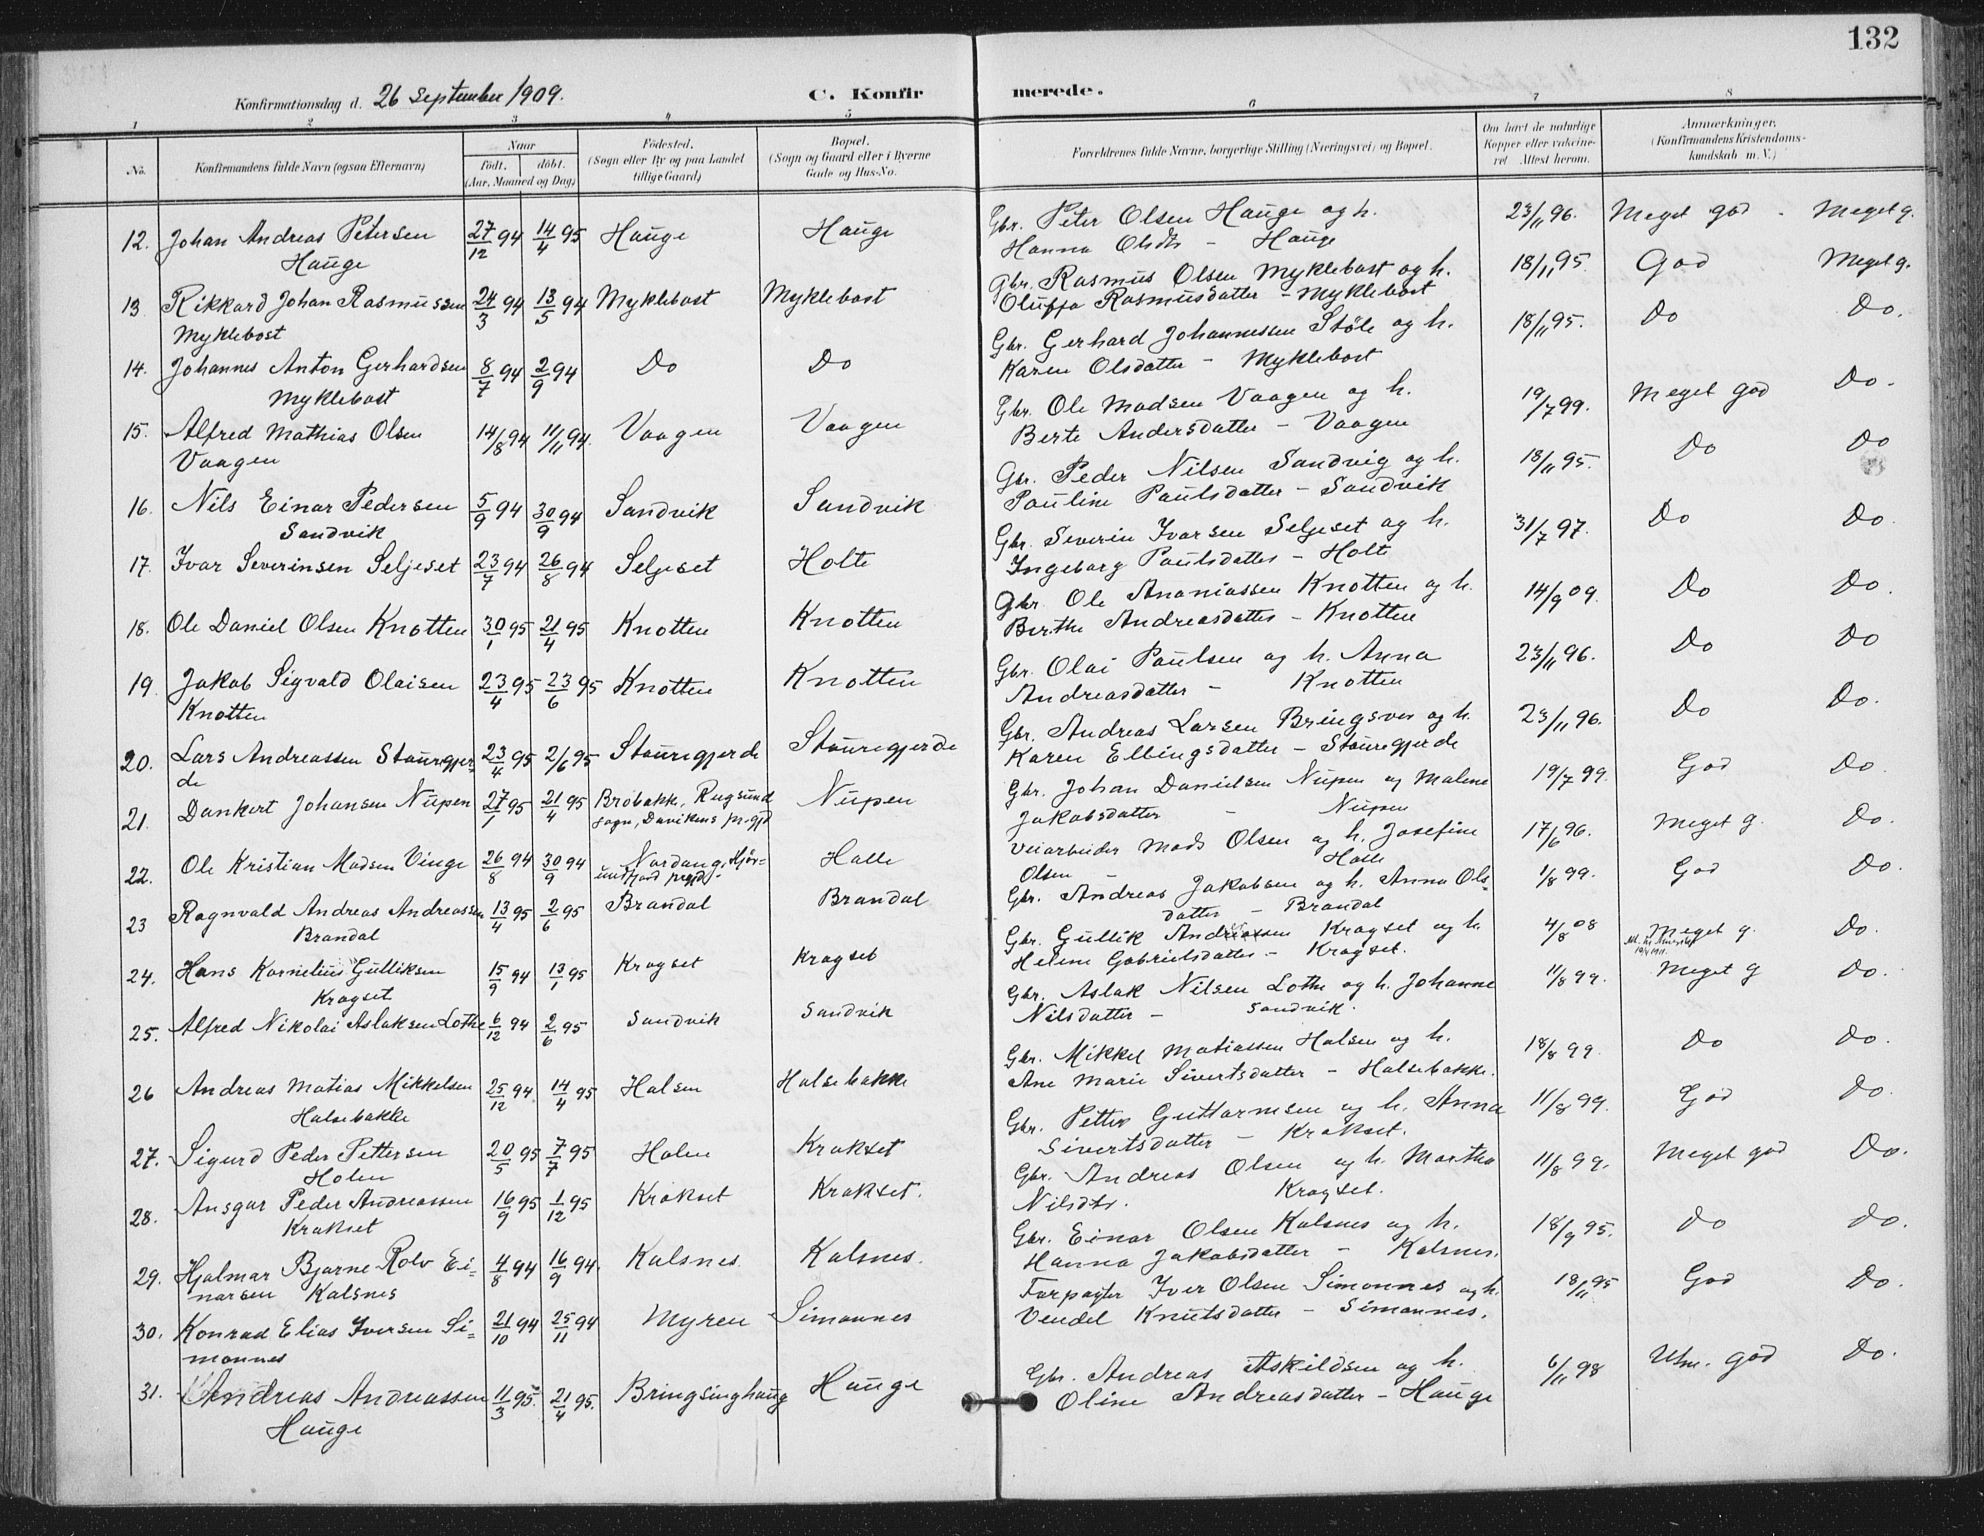 132
Konfirmationsdag d. 26 September 1909.
C. Konfirmerede.
1 2 3 4 5 6 7 8
No. Konfirmandens fulde Navn (ogsaa Efternavn) Naar födt. döbt. (Aar, Maaned og Dag) Födested. (Sogn eller By og paa Landet tillige Gaard) Bopæl. (Sogn og Gaard eller i Byerne Gade og Hus-No. Forældrenes fulde Navne, borgerlige Stilling (Næringsvei) og Bopæl. Om havt de naturlige Kopper eller vaccineret Attest herom. Anmærkninger. (Konfirmandens Kristendomskundskab m. V.)
12. Johan Andreas Petersen 27/12 94 14/4 95 Hauge Hauge Gbr. Peter Olsen Hauge og h. 23/11 96. Meget god - Meget g.
Hauge Hanna Olsdtr - Hauge
13. Rikkard Johan Rasmussen 24/3 94 13/5 94 Myklebost Myklebost Gbr. Rasmus Olsen Myklebost og h. 18/11 95. God Meget g.
Myklebost Oluffa Rasmusdatter - Myklebost
14. Johannes Anton Gerhardsen 8/7 94 2/9 94 Do Do Gbr. Gerhard Johannesen Støle og h. 18/11 95. Do Do.
Myklebost Karen Olsdatter - Myklebost
15. Alfred Mathias Olsen 14/8 94 11/11 94. Vaagen Vaagen Gbr. Ole Madsen Vaagen og h. 19/7 99. Meget god Do.
Vaagen Berte Andersdatter - Vaagen
16. Nils Einar Pedersen 5/9 94 30/9 94 Sandvik Sandvik Gbr. Peder Nilsen Sandvig og h. 18/11 95. Do Do
Sandvik Pauline Paulsdatter - Sandvik
17. Ivar Severinsen Seljeset 23/7 94 26/8 94 Seljeset Holte Gbr. Severin Ivarsen Seljeset og h. 31/7 97. Do Do.
Ingeborg Paulsdatter - Holte
18. Ole Daniel Olsen Knotten 30/1 95 21/4 95 Knotten Knotten Gbr. Ole Ananiassen Knotten og h. 14/9 09. Do Do.
Berthe Andreasdatter - Knotten
19. Jakob Sigvald Olaisen 23/4 95 23/6 95 Knotten Knotten Gbr. Olai Paulsen og h. Anna 23/11 96. Do Do
Knotten Andreasdatter - Knotten
20. Lars Andreassen Stauregjer- 23/4 95 2/6 95 Stauregjerde Stauregjerde Gbr. Andreas Larsen Bringsvor og h. 23/11 96. Do Do.
de Karen Ellingsdatter - Stauregjerde
21. Dankert Johansen Nupen 27/1 95 21/4 95 Bröbakke, Rugsund Nupen Gbr. Johan Danielsen Nupen og Malene 19/7 99. God Do.
sogn, Davikens pr.gjd Jakobsdatter - Nupen
22. Ole Kristian Madsen Vinge 26/8 94 30/9 94 Nordang, Hjör- Halle Veiarbeider Mads Olsen og h. Josefine 17/6 96. Meget g. Do.
undfjord prgjd. Olsen - Halle
23 Ragnvald Andreas Andreassen 13/4 95 2/6 95 Brandal Brandal Gbr. Andreas Jakobsen og h. Anna Ols- 1/8 99. God Do.
Brandal datter - Brandal
24. Hans Kornelius Gulliksen 15/9 94 13/1 95 Kragset Kragset Gbr. Gullik Andreassen Kragset og h. 4/8 08 Meget g. Do.
Kragset Helene Gabrielsdatter - Kragset.
25. Alfred Nikolai Aslaksen Lothe 6/12 94 2/6 95 Sandvik Sandvik Gbr. Aslak Nilsen Lothe og h. Johanne 11/8 99. Meget g Do.
Nilsdatter - Sandvik.
26 Andreas Matias Mikkelsen 25/12 94 14/4 95 Halsen Halsebakke Gbr. Mikkel Matiassen Halsen og h. 18/8 99. Do Do.
Halsebakke Ane Marie Sivertsdatter - Halsebakke.
27. Sigurd Peder Pettersen 20/5 95 7/7 95 Holen Krakset Gbr. Petter Guttormsen og h. Anna 11/8 99. God Do.
Holen Sivertsdatter - Krakset.
28. Ansgar Peder Andreassen 16/9 95 1/12 95 Krakset Krakset. Gbr. Andreas Olsen og h. Martha 11/8 99. Meget god Do.
Krakset Nilsdtr. Kragset.
29. Hjalmar Bjarne Rolv Ei- 4/8 94 16/9 94. Kalsnes. Kalsnes. Gbr. Einar Olsen Kalsnes og h. 18/9 95. Do Do.
narsen Kalsnes Hanna Jakobsdatter - Kalsnes.
30. Konrad Elias Iversen Si- 21/10 94 25/11 94 Myren - Simonnes Forpagter Iver Olsen Simonnes og h. 18/11 95 God Do.
monnes Vendel Knutsdatter - Simonnes.
31. Andreas Andreassen 11/3 95. 21/4 95. Bringsinghaug Hauge Gbr. Andreas Askildsen og h. 6/11 98 Utm. god Do.
Hauge Oline Andreasdatter - Hauge